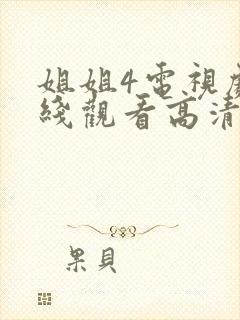 姐姐4電視
綫觀看高清
果貝